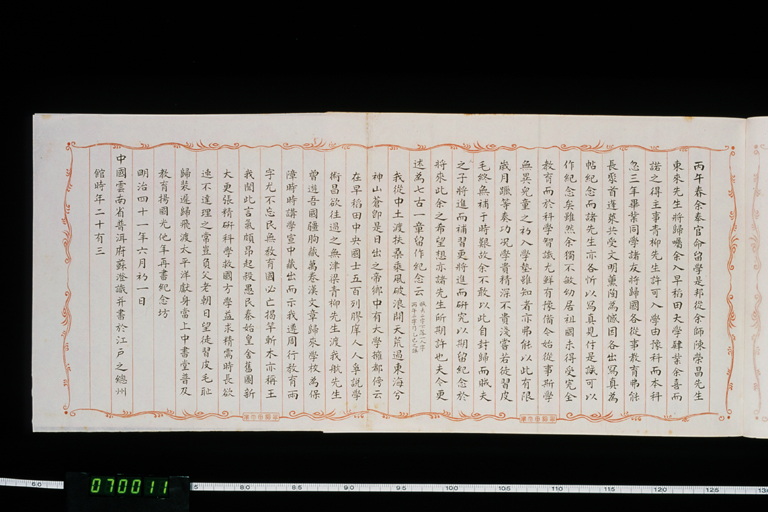 丙午春余奉官命留學是邦從余師陳榮昌先生
東來先生將歸囑余入早稻田大學肄業余喜而
諾之得主事青柳先生許可入學由豫科而本科
忽三年畢業同學諸友將歸國各從事教育弗能
長聚首蓬萊共受文明薰陶為憾因各出寫真為
帖紀念而諸先生亦各所以寫真見付是誠可以
作紀念矣雖然余獨不敏幼居祖國未得受完全
教育而於科學智識尤鮮有豫備今始從事斯學
無異兒童之初入學墊雖知者亦弗能以此有限
歲月躐等奏功况學貴精深不貴淺嘗若徒習皮
毛終無補于時艱故余不敢以此自封歸而賊夫
之子將進而補習更將進而研究以期留紀念於
將來此余之希望想亦諸先生所期許也夫今更
述為七古一章留作紀念云
我從中土渡扶桑乘風破浪開天荒過東海兮
神山蒼即是日出之帝鄉中有大學擁都傍云
在早稻田中央國士五百列膠庠人人爭説學
術昌欲往過之無津梁青柳先生渡我航先生
曾遊吾國疆胸藏萬卷漢文章歸來學校為保
障時時講學宣中藏出而示我遵周行教育兩
字尤不忘民無教育國必亡揭竿斬木亦稱王
我聞此言氣頗昂起救愚民秦始皇舍舊圖新
大更張精研科學救國方學益求精需時長欲
速不達理之常豈負父老朝日望徒習皮毛耻
歸裝遲歸飛渡太平洋獻身當上中書堂普及
教育揚國光他年再書紀念坊
明治四十一年六月初一日
中國雲南省普洱府蘇澄識并書於江戶之總州
館時年二十有三
070011
60
5
8.0
8.5
9.0
9.5
100
105
110
115
120
125